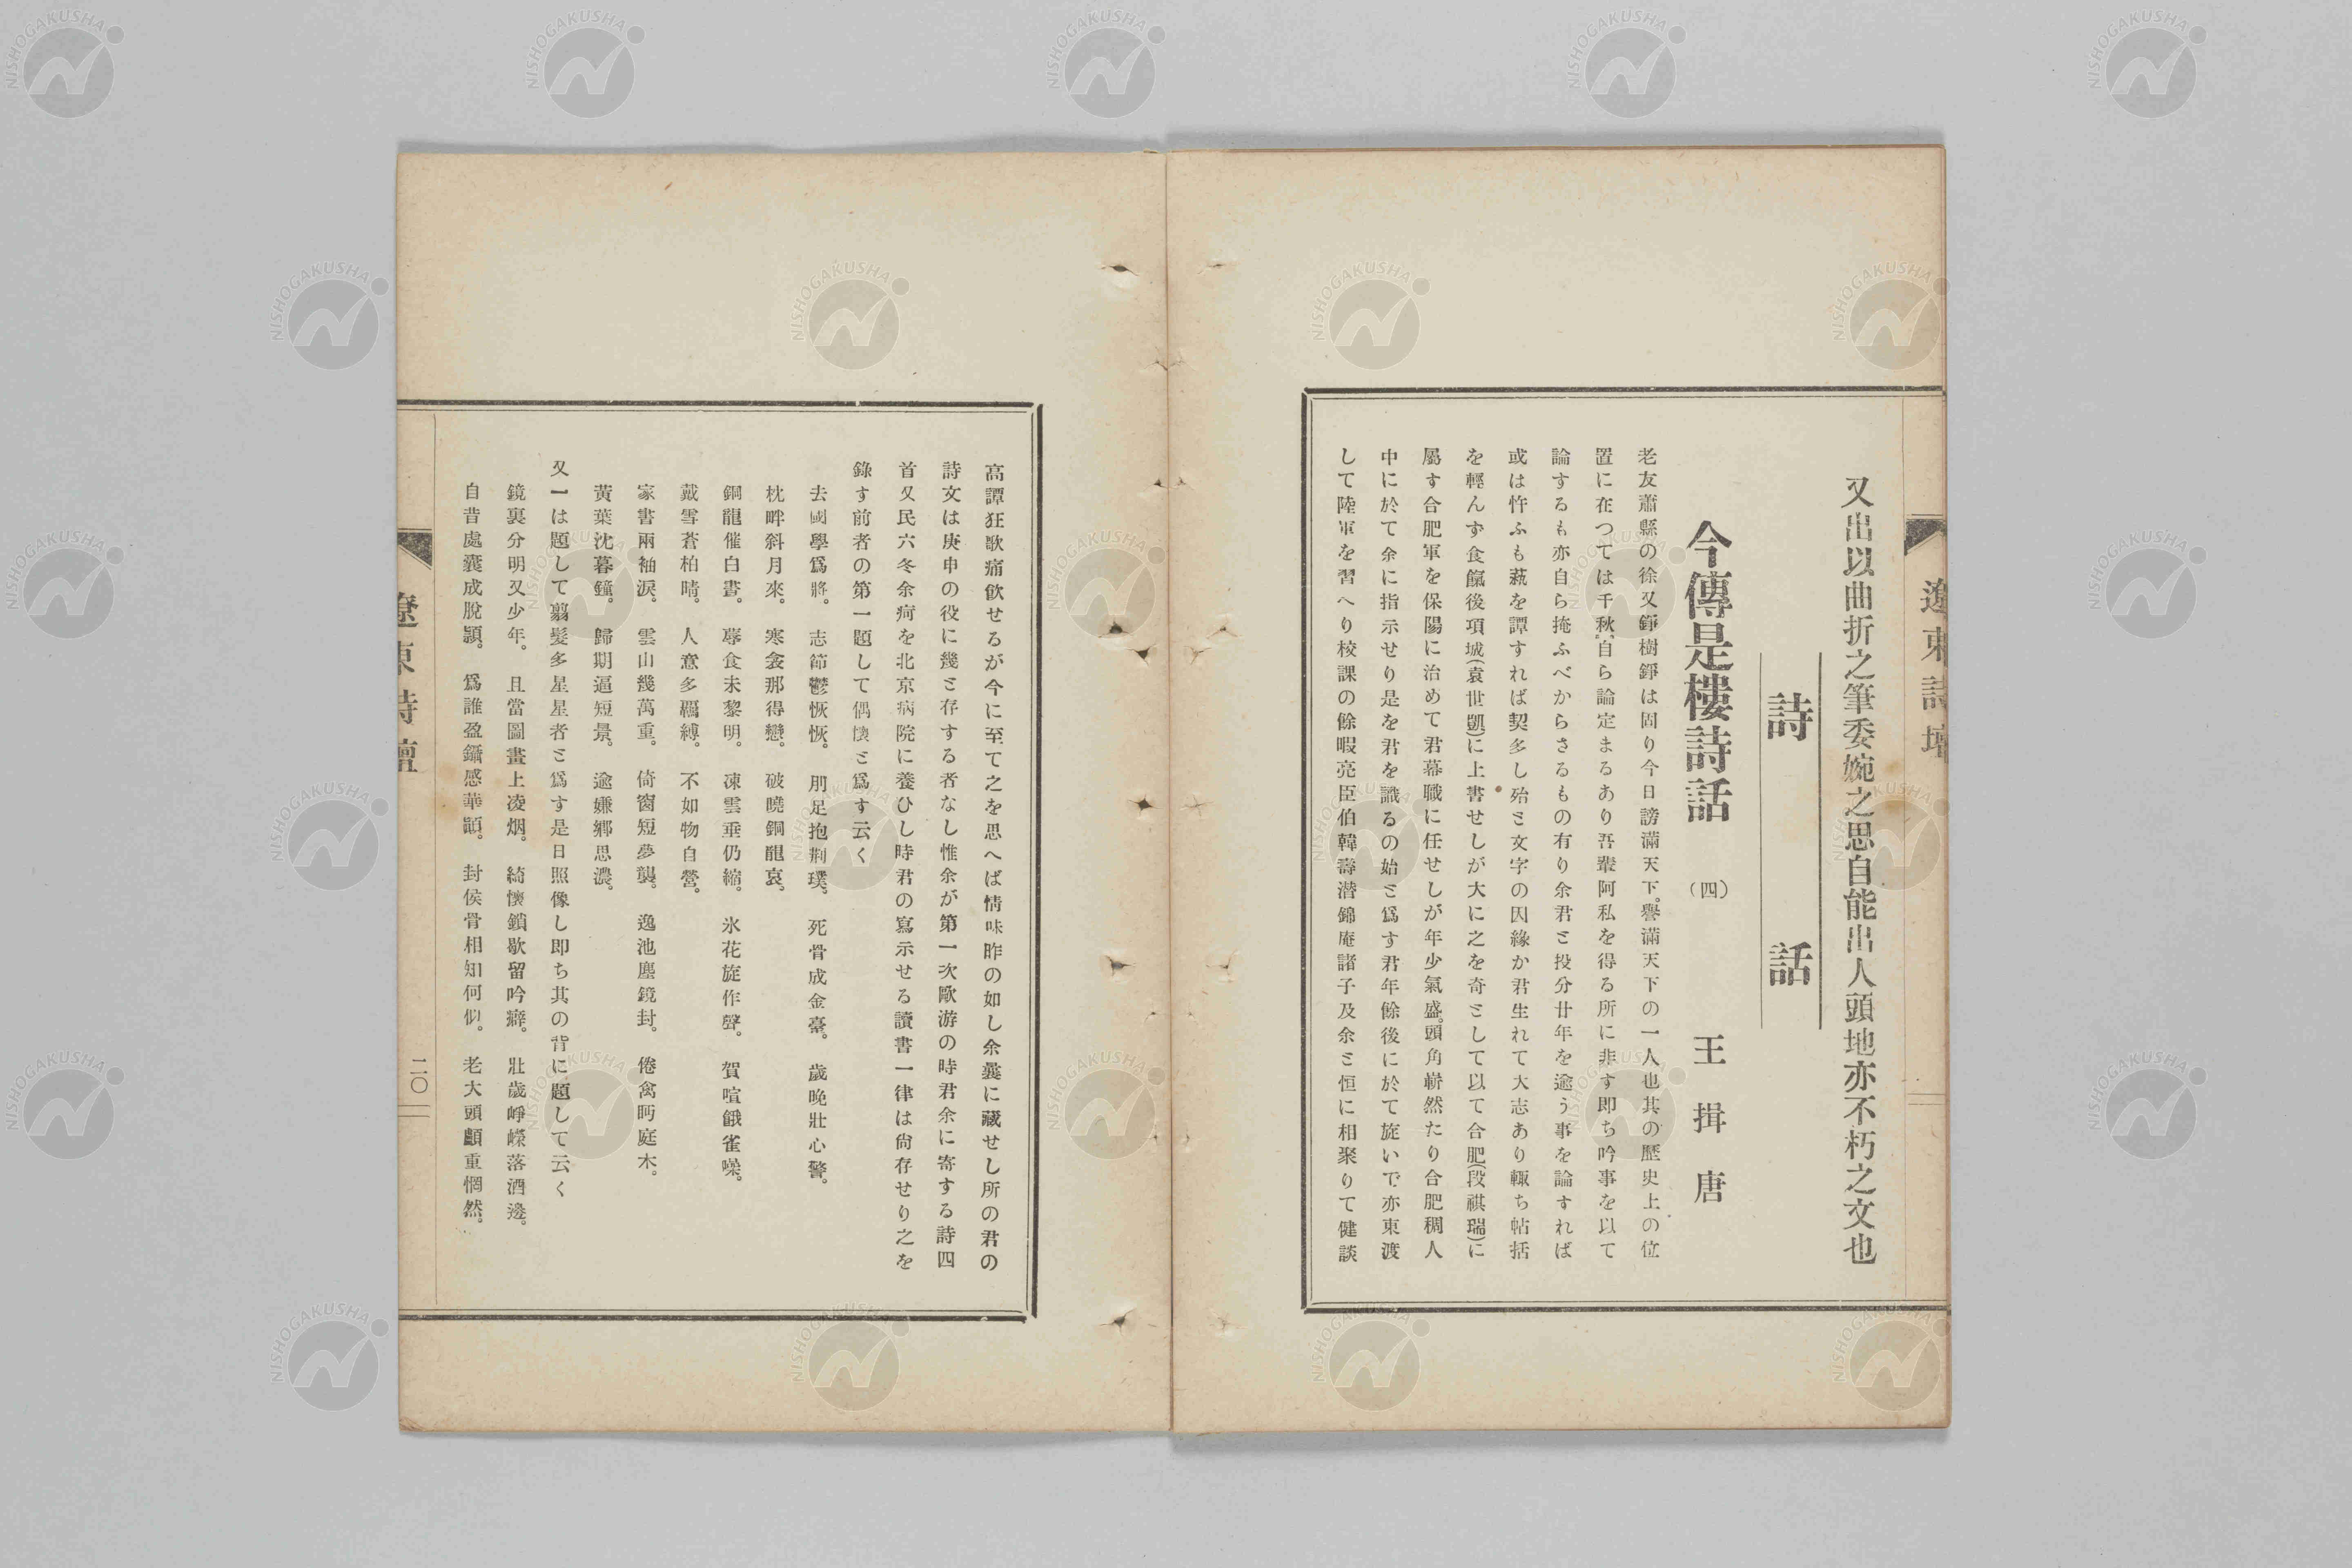 遼東詩壇
又出以曲折之筆委婉之思自能出人頭地亦不朽之文也
詩話
今傳是樓詩話 (四) 王揖唐
老友蕭縣の徐又錚樹錚は固り今日謗滿天下。譽滿天下の一人也其の歷史上の位
置に在つては千秋。自ら論定まるあり吾輩阿私を得る所に非す即ち吟事を以て
論するも亦自ら掩ふべからさるもの有り余君と投分廿年を逾う事を論すれば
或は忤ふも藝を譚すれば契多し殆と文字の因緣か君生れて大志あり輒ち帖括
を輕んず食餼後項城(袁世凱)に上書せしが大に之を奇として以て合肥(段祺瑞)に
屬す合肥軍を保陽に治めて君幕職に任せしが年少氣盛。頭角嶄然たり合肥稠人
中に於て余に指示せり是を君を識るの始と爲す君年餘後に於て旋いで亦東渡
して陸軍を習へり校課の餘暇亮臣伯韓壽潜錦庵諸子及余と恒に相聚りて健談
高譚狂歌痛飮せるが今に至て之を思へば情味昨の如し余曩に藏せし所の君の
詩文は庚申の役に幾と存する者なし惟余が第一次歐游の時君余に寄する詩四
首又民六冬余疴を北京病院に養ひし時君の寫示せる讀書一律は尙存せり之を
錄す前者の第一題して偶懷と爲す云く
去國學爲將。 志節鬱恢恢。 刖足抱荆璞。 死骨成金臺。 歲晚壯心警。
枕畔斜月來。 寒衾那得戀。 破曉銅龍哀。
銅龍催白晝。 蓐食未黎明。 凍雲垂仍縮。 氷花旋作聲。 賀喧餓雀噪。
戴雪蒼柏晴。 人意多羈縛。 不如物自營。
家書兩袖淚。 雲山幾萬重。 倚窗短夢襲。 逸池塵鏡封。 倦禽眄庭木。
黃葉沈暮鐘。 歸期逼短景。 逾嫌鄉思濃。
又一は題して翦髮多星星者と爲す是日照像し即ち其の背に題して云く
鏡裏分明又少年。 且當圖畫上凌烟。 綺懷鎖歇留吟癖。 壯歲崢嶸落酒邊。
自昔處囊成脫顯。 爲誰盈鑷感華顚。 封侯骨相知何似。 老大頭顱重惘然。
遼東詩壇
二〇
NISHOGAKUSHA